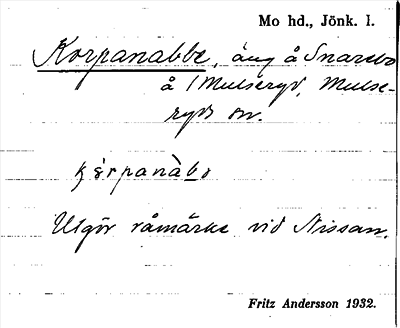 Mo hd., Jönk. l.
Korpanabbe, äng å Snarebo
å (Mulseryd, Mulse-
ryds sn.
Utgör råmärke vid Nissan.
Fritz Andersson 1932.